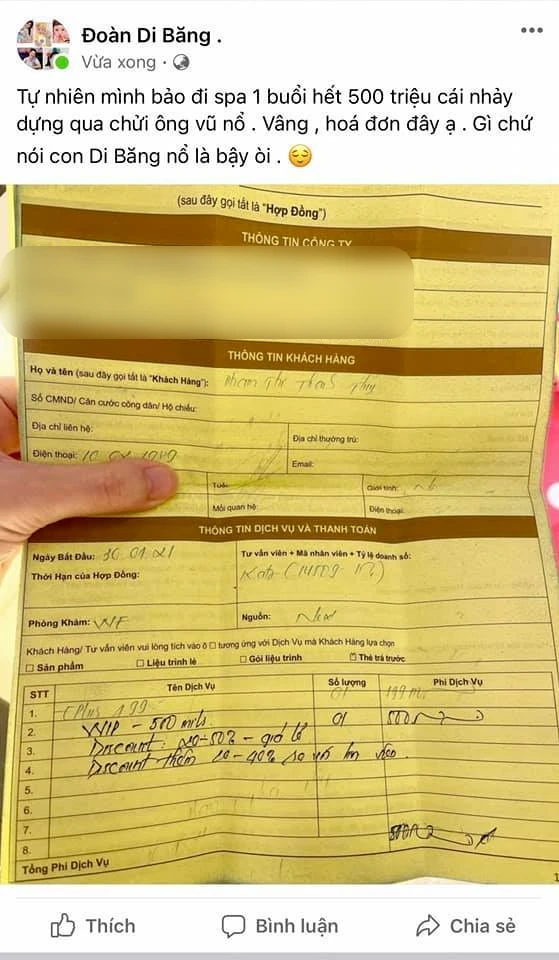 Đoàn Di Băng .
Vừa xong ·
Tự nhiên mình bảo đi spa 1 buổi hết 500 triệu cái nhảy
dựng qua chửi ông vũ nổ . Vâng , hoá đơn đây ạ . Gì chứ
nói con Di Băng nổ là bậy òi . 😌
(sau đây gọi tắt là "Hợp Đồng")
THÔNG TIN CÔNG TY
THÔNG TIN KHÁCH HÀNG
Họ và tên (sau đây gọi tắt là "Khách Hàng"):
Số CMND/ Căn cước công dân/ Hộ chiếu:
Địa chỉ liên hệ:
Địa chỉ thường trú:
Điện thoại:
Email:
Giới tính:
Mối quan hệ:
Điện thoại:
THÔNG TIN DỊCH VỤ VÀ THANH TOÁN
Ngày Bắt Đầu: 30.01.21
Tư vấn viên + Mã nhân viên + Tỷ lệ doanh số:
Thời Hạn của Hợp Đồng:
Phòng Khám: WF
Nguồn: New
Khách Hàng/ Tư vấn viên vui lòng tích vào ô ☐ tương ứng với Dịch Vụ mà Khách Hàng lựa chọn
☐ Sản phẩm ☐ Liệu trình lẻ ☐ Gói liệu trình Thẻ trả trước
STT Tên Dịch Vụ Số lượng Phí Dịch Vụ
1. 01
2. VVIP - 500 mils 01
3. Discount: 20-50% - giá lẻ
4. Discount thêm 20-40%
5.
6.
7.
8.
Tổng Phí Dịch Vụ
1
Thích Bình luận Chia sẻ